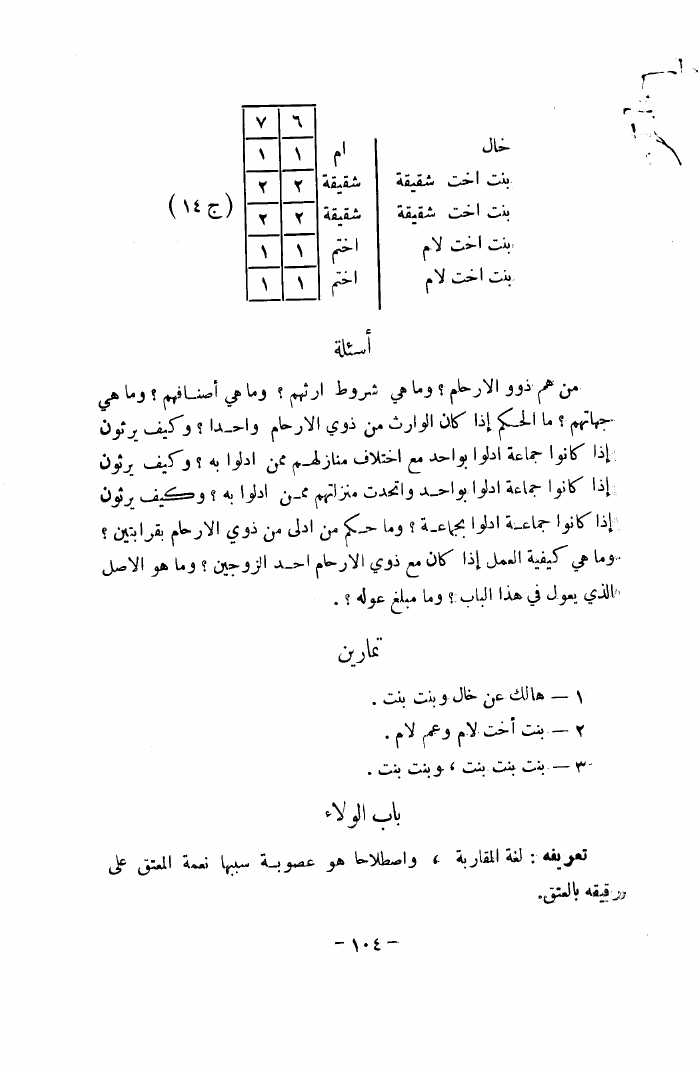 ٦ ٧
خال ام ١ ١
بنت اخت شقيقة شقيقة ٢ ٢
بنت اخت شقيقة شقيقة ٢ ٢ (ج ١٤)
بنت اخت لام اختم ١ ١
بنت اخت لام اختم ١ ١
أسئلة
من هم ذوو الارحام ؟ وما هي شروط ارثهم ؟ وما هي أصنافهم ؟ وما هي
جهاتهم ؟ ما الحكم إذا كان الوارث من ذوي الارحام واحدا ؟ وكيف يرثون
إذا كانوا جماعة ادلوا بواحد مع اختلاف منازلهم ممن ادلوا به ؟ وكيف يرثون
إذا كانوا جماعة ادلوا بواحد واتحدت منزلتهم ممن ادلوا به ؟ وكيف يرثون
إذا كانوا جماعة ادلوا بجماعة ؟ وما حكم من ادلى من ذوي الارحام بقرابتين ؟
وما هي كيفية العمل إذا كان مع ذوي الارحام احد الزوجين ؟ وما هو الاصل
الذي يعول في هذا الباب ؟ وما مبلغ عوله ؟ .
تمارين
١ — هالك عن خال وبنت بنت .
٢ — بنت أخت لام وعم لام .
٣ — بنت بنت بنت ، وبنت بنت .
باب الولاء
تعريفه : لغة المقاربة ، واصطلاحا هو عصوبة سببها نعمة المعتق على
رقيقه بالعتق.
– ١٠٤ –